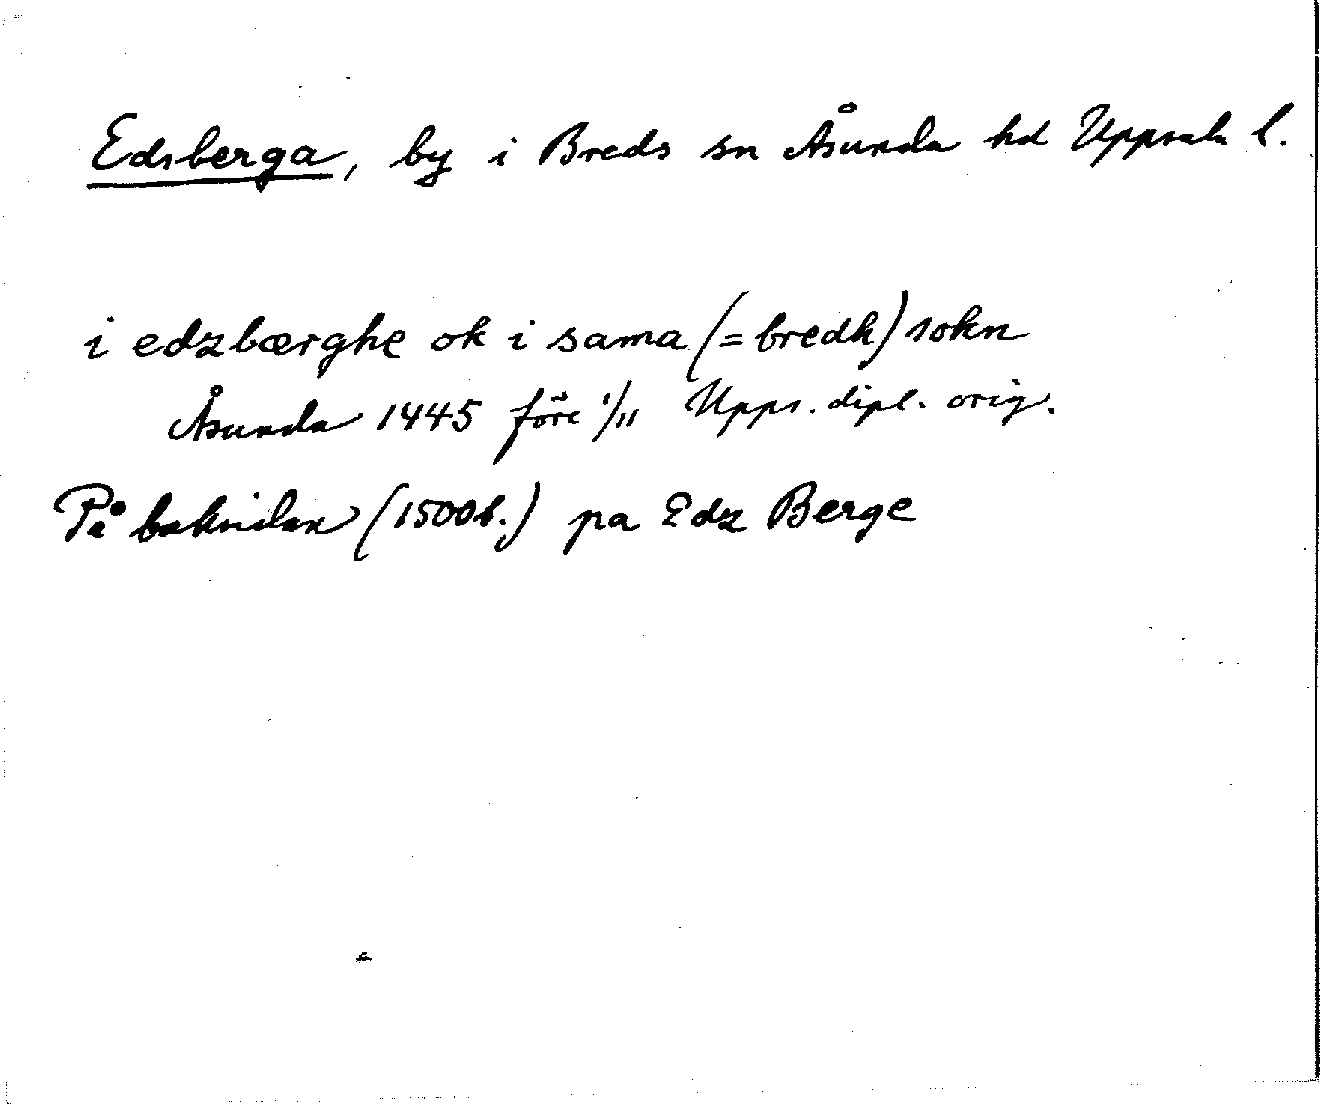 Edsberga, by i Breds sn Åsunda hd Uppsala l.
i edzbærghe ok i sama (= bredh) sokn
Åsunda 1445 före 1/11 Upps. dipl. orig.
På baksidan (1500t.) pa Edz Berge